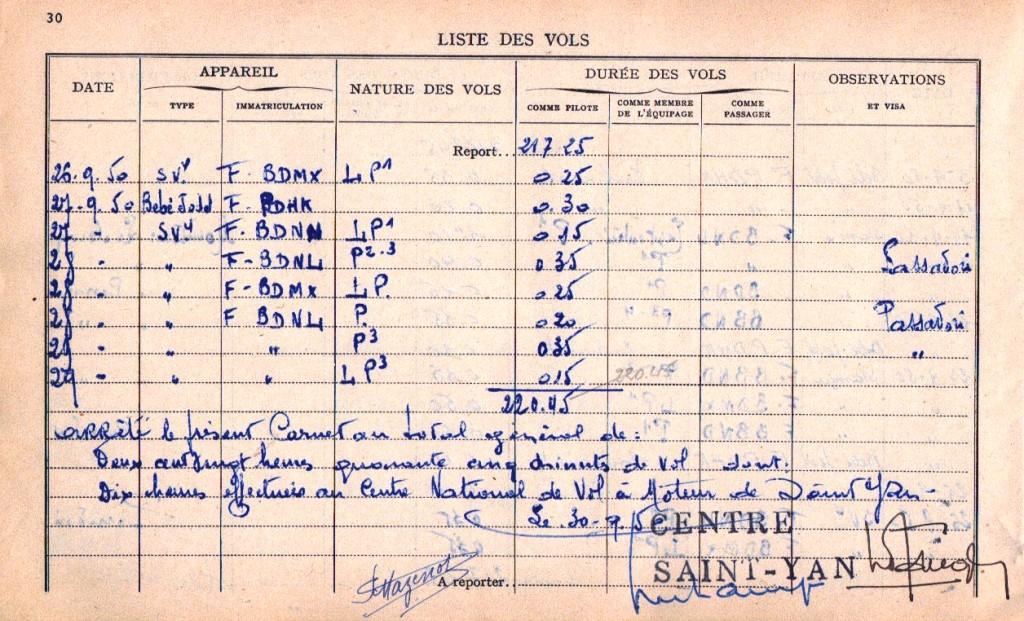 30
LISTE DES VOLS
DATE APPAREIL NATURE DES VOLS DURÉE DES VOLS OBSERVATIONS
TYPE IMMATRICULATION COMME PILOTE COMME MEMBRE DE L'ÉQUIPAGE COMME PASSAGER ET VISA
Report... 217 25
26.9.50 SV4 F-BDMX LP1 0.25
27.9.50 Bébé Jodd F-PDHK 0.30
27 - SV4 F-BDNN LP1 0.15
28 - " F-BDNL P2.3 0 35 Passadori
28 - " F-BDMX LP. 0 25
28 - " F BDNL P. 0 20 Passadori
28 - " " P3 0 35 "
29 - " " LP3 0 15 220.45
220.45
ARRÊTÉ le présent Carnet au total général de:
Deux cent vingt heures quarante cinq minutes de vol dont:
Dix heures effectuées au Centre National de Vol à Moteur de Saint Yan-
Le 30-9.50
CENTRE
SAINT-YAN
A reporter...